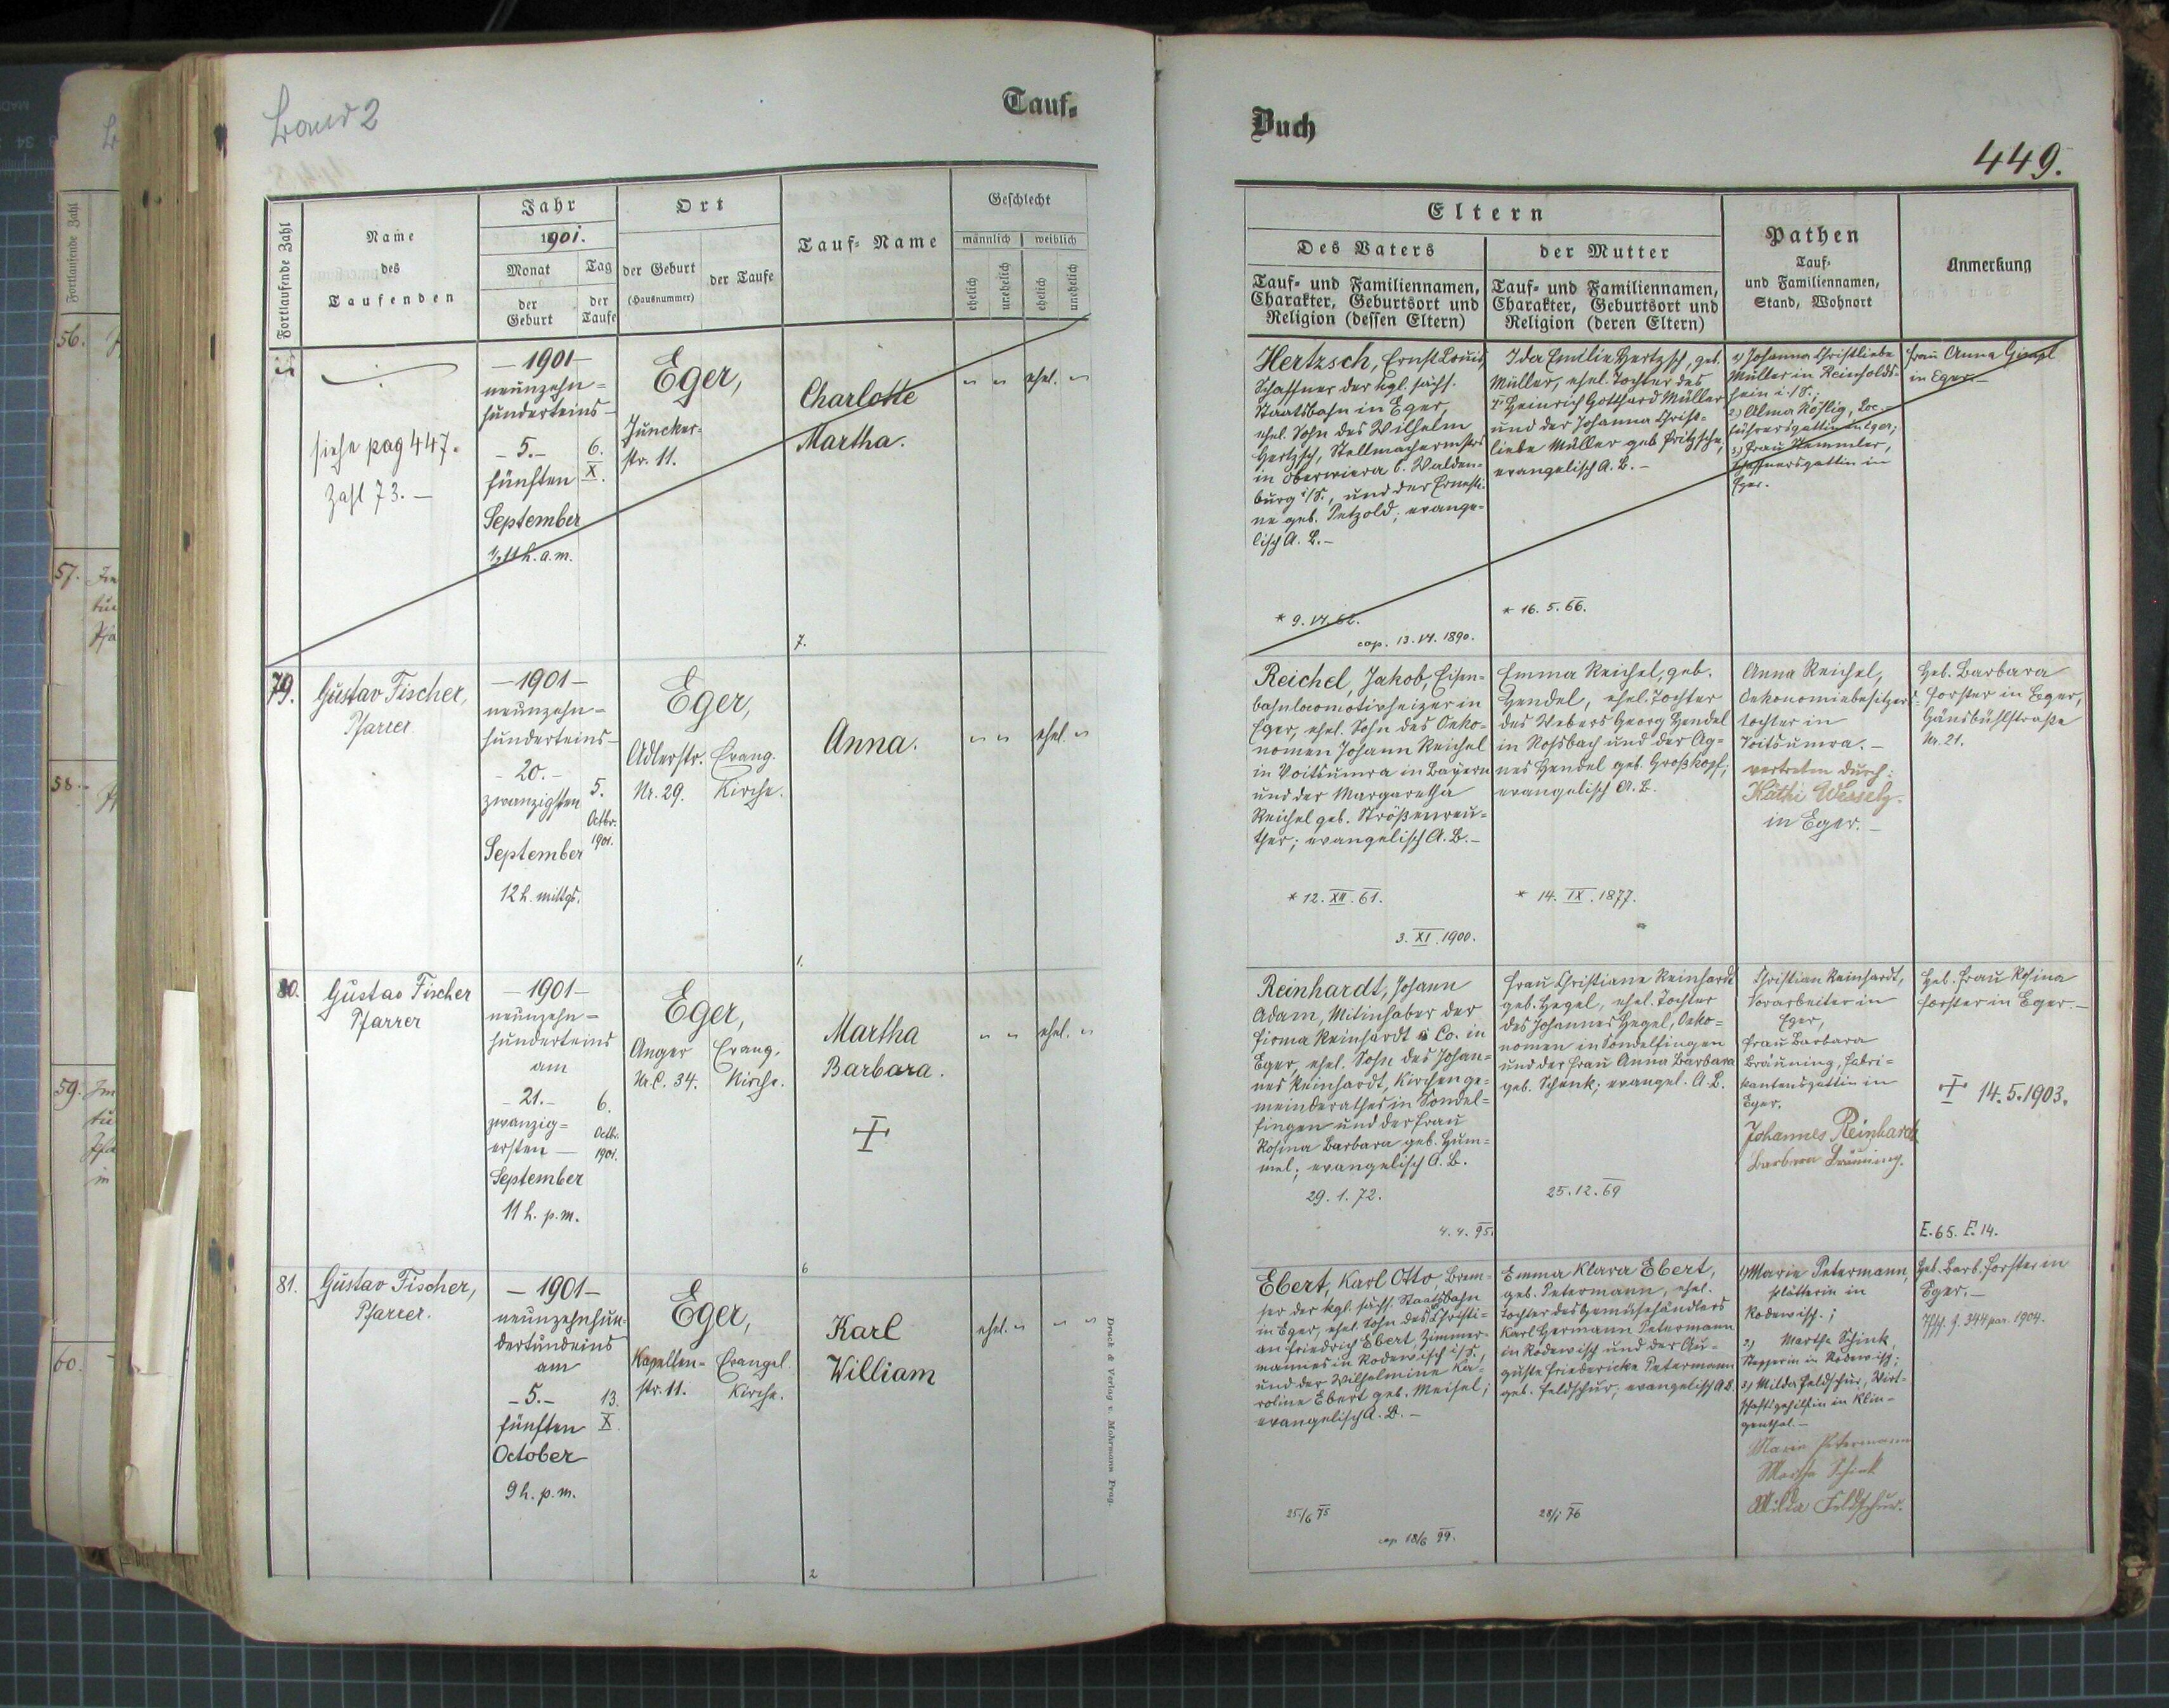 Band 2
Tauf-
Buch
449.
Fortlaufende Zahl
Name
des
Taufenden
Jahr
1901.
Monat
der
Geburt
Tag
der
Taufe
Ort
der Geburt
(Hausnummer)
der Taufe
Tauf-Name
Geschlecht
männlich
weiblich
ehelich
unehelich
ehelich
unehelich
Eltern
Des Vaters
Tauf- und Familiennamen,
Charakter, Geburtsort und
Religion (dessen Eltern)
der Mutter
Tauf- und Familiennamen,
Charakter, Geburtsort und
Religion (deren Eltern)
Pathen
Tauf-
und Familiennamen,
Stand, Wohnort
Anmerkung
siehe pag 447.
Zahl 73. –
– 1901 –
neunzehn-
hunderteins –
– 5. –
fünften
September
½11 h. a. m.
6.
X.
Eger,
Juncker-
str. 11.
Charlotte
Martha.
" " ehel. "
7.
Hertzsch, Ernst Louis,
Schaffner der kgl. sächs.
Staatsbahn in Eger,
ehel. Sohn des Wilhelm
Hertzsch, Stellmachermstrs
in Oberwiera b. Walden-
burg i/S., und der Ernesti-
ne geb. Petzold; evange-
lisch A. B. –
* 9. VI. 62.
cop. 13. VI. 1890.
Ida Emilie Hertzsch, geb.
Müller, ehel. Tochter des
Heinrich Gotthard Müller
und der Johanna Christ-
liebe Müller geb. Fritzsche,
evangelisch A. B. –
* 16. 5. 66.
1) Johanna Christliebe
Müller in Reinholds-
hain i./S.;
2) Alma Röslig, Loc.-
führersgattin in Eger;
3) Frau Stemmler,
Schaffnersgattin in
Eger.
Frau Anna Gingl
in Eger. –
79.
Gustav Fischer,
Pfarrer
– 1901 –
neunzehn-
hunderteins –
– 20. –
zwanzigsten
September
12 h. mittgs.
5.
Octbr.
1901.
Eger,
Adlerstr.
Nr. 29.
Evang.
Kirche.
Anna.
" " ehel. "
1.
Reichel, Jakob, Eisen-
bahnlocomotivheizer in
Eger, ehel. Sohn des Oeko-
nomen Johann Reichel
in Voitsumra in Bayern
und der Margaretha
Reichel geb. Strößenreu-
ther; evangelisch A. B. –
* 12. XII. 61.
3. XI. 1900.
Emma Reichel, geb.
Hendel, ehel. Tochter
des Webers Georg Hendel
in Rossbach und der Ag-
nes Hendel geb. Großkopf;
evangelisch A. B.
* 14. IX. 1877.
Anna Reichel,
Oekonomiebesitzers-
tochter in
Voitsumra. –
vertreten durch:
Käthi Wessely.
in Eger. –
Heb. Barbara
Forster in Eger,
Gänsbühlstraße
Nr. 21.
80.
Gustav Fischer
Pfarrer
– 1901 –
neunzehn-
hunderteins
am
– 21. –
zwanzig-
ersten –
September
11 h. p. m.
6.
Octbr.
1901.
Eger,
Anger
Nr. C. 34.
Evang.
Kirche.
Martha
Barbara.
" " ehel. "
6
Reinhardt, Johann
Adam, Mitinhaber der
Firma Reinhardt & Co. in
Eger, ehel. Sohn des Johan-
nes Reinhardt, Kirchenge-
meinderathes in Sondel-
fingen und der Frau
Rosina Barbara geb. Hum-
mel; evangelisch A. B.
29. 1. 72.
4. 4. 95.
Frau Christiane Reinhardt
geb. Hegel, ehel. Tochter
des Johannes Hegel, Oeko-
nomen in Sondelfingen
und der Frau Anna Barbara
geb. Schenk; evangel. A. B.
25. 12. 69
Christian Reinhardt,
Vorarbeiter in
Eger,
Frau Barbara
Bräuning, Fabri-
kantensgattin in
Eger.
Johannes Reinhardt
Barbara Bräuning.
Heb. Frau Rosina
Forster in Eger. –
14. 5. 1903.
E. 65. F. 14.
81.
Gustav Fischer,
Pfarrer.
– 1901 –
neunzehnhun-
dertundeins
am
– 5. –
fünften
October
9 h. p. m.
13.
X.
Eger,
Kapellen-
str. 11.
Evangel.
Kirche.
Karl
William
ehel. " " "
2
Ebert, Karl Otto, Brem-
ser der kgl. sächs. Staatsbahn
in Eger, ehel. Sohn des Christi-
an Friedrich Ebert, Zimmer-
mannes in Rodewisch i/S.,
und der Wilhelmine Ka-
roline Ebert geb. Meisel;
evangelisch A. B. –
25./6 75
cop 18/6 99.
Emma Klara Ebert,
geb. Petermann, ehel.
Tochter des Gemüsehändlers
Karl Hermann Petermann
in Rodewisch und der Au-
guste Friedericke Petermann
geb. Feldschur; evangelisch A. B.
28/1 76
1) Marie Petermann,
Plätterin in
Rodewisch.;
2) Martha Schink,
Stepperin in Rodewisch;
3) Milda Feldschur, Wirt-
schaftsgehilfin in Klin-
genthal. –
Marie Petermann
Martha Schink
Milda Feldschur.
Heb. Barb. Forster in
Eger. –
344 par. 1904.
Druck & Verlag v. Mohrmann Prag.
Fortlaufende Zahl
56.
57.
58.
59.
60.